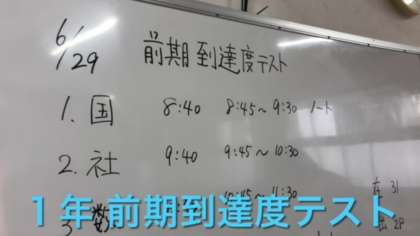 6/29 前期到達度テスト
1. 国 8:40 8:45~9:30 ノート
2. 社 9:40 9:45~10:30
3 数 10:45~11:30
在 31
1年 前期到達度テスト